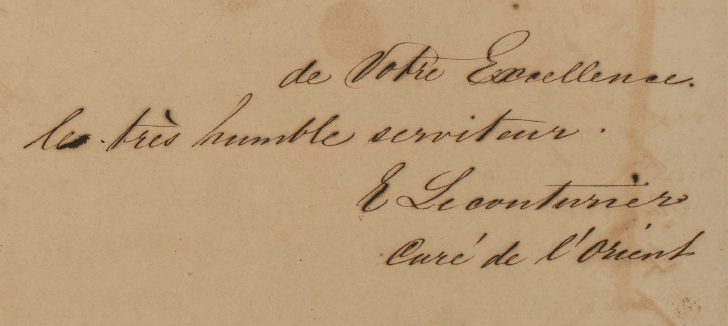 de Votre Excellence.
le très humble serviteur.
E Lecouturier
Curé de l'Orient